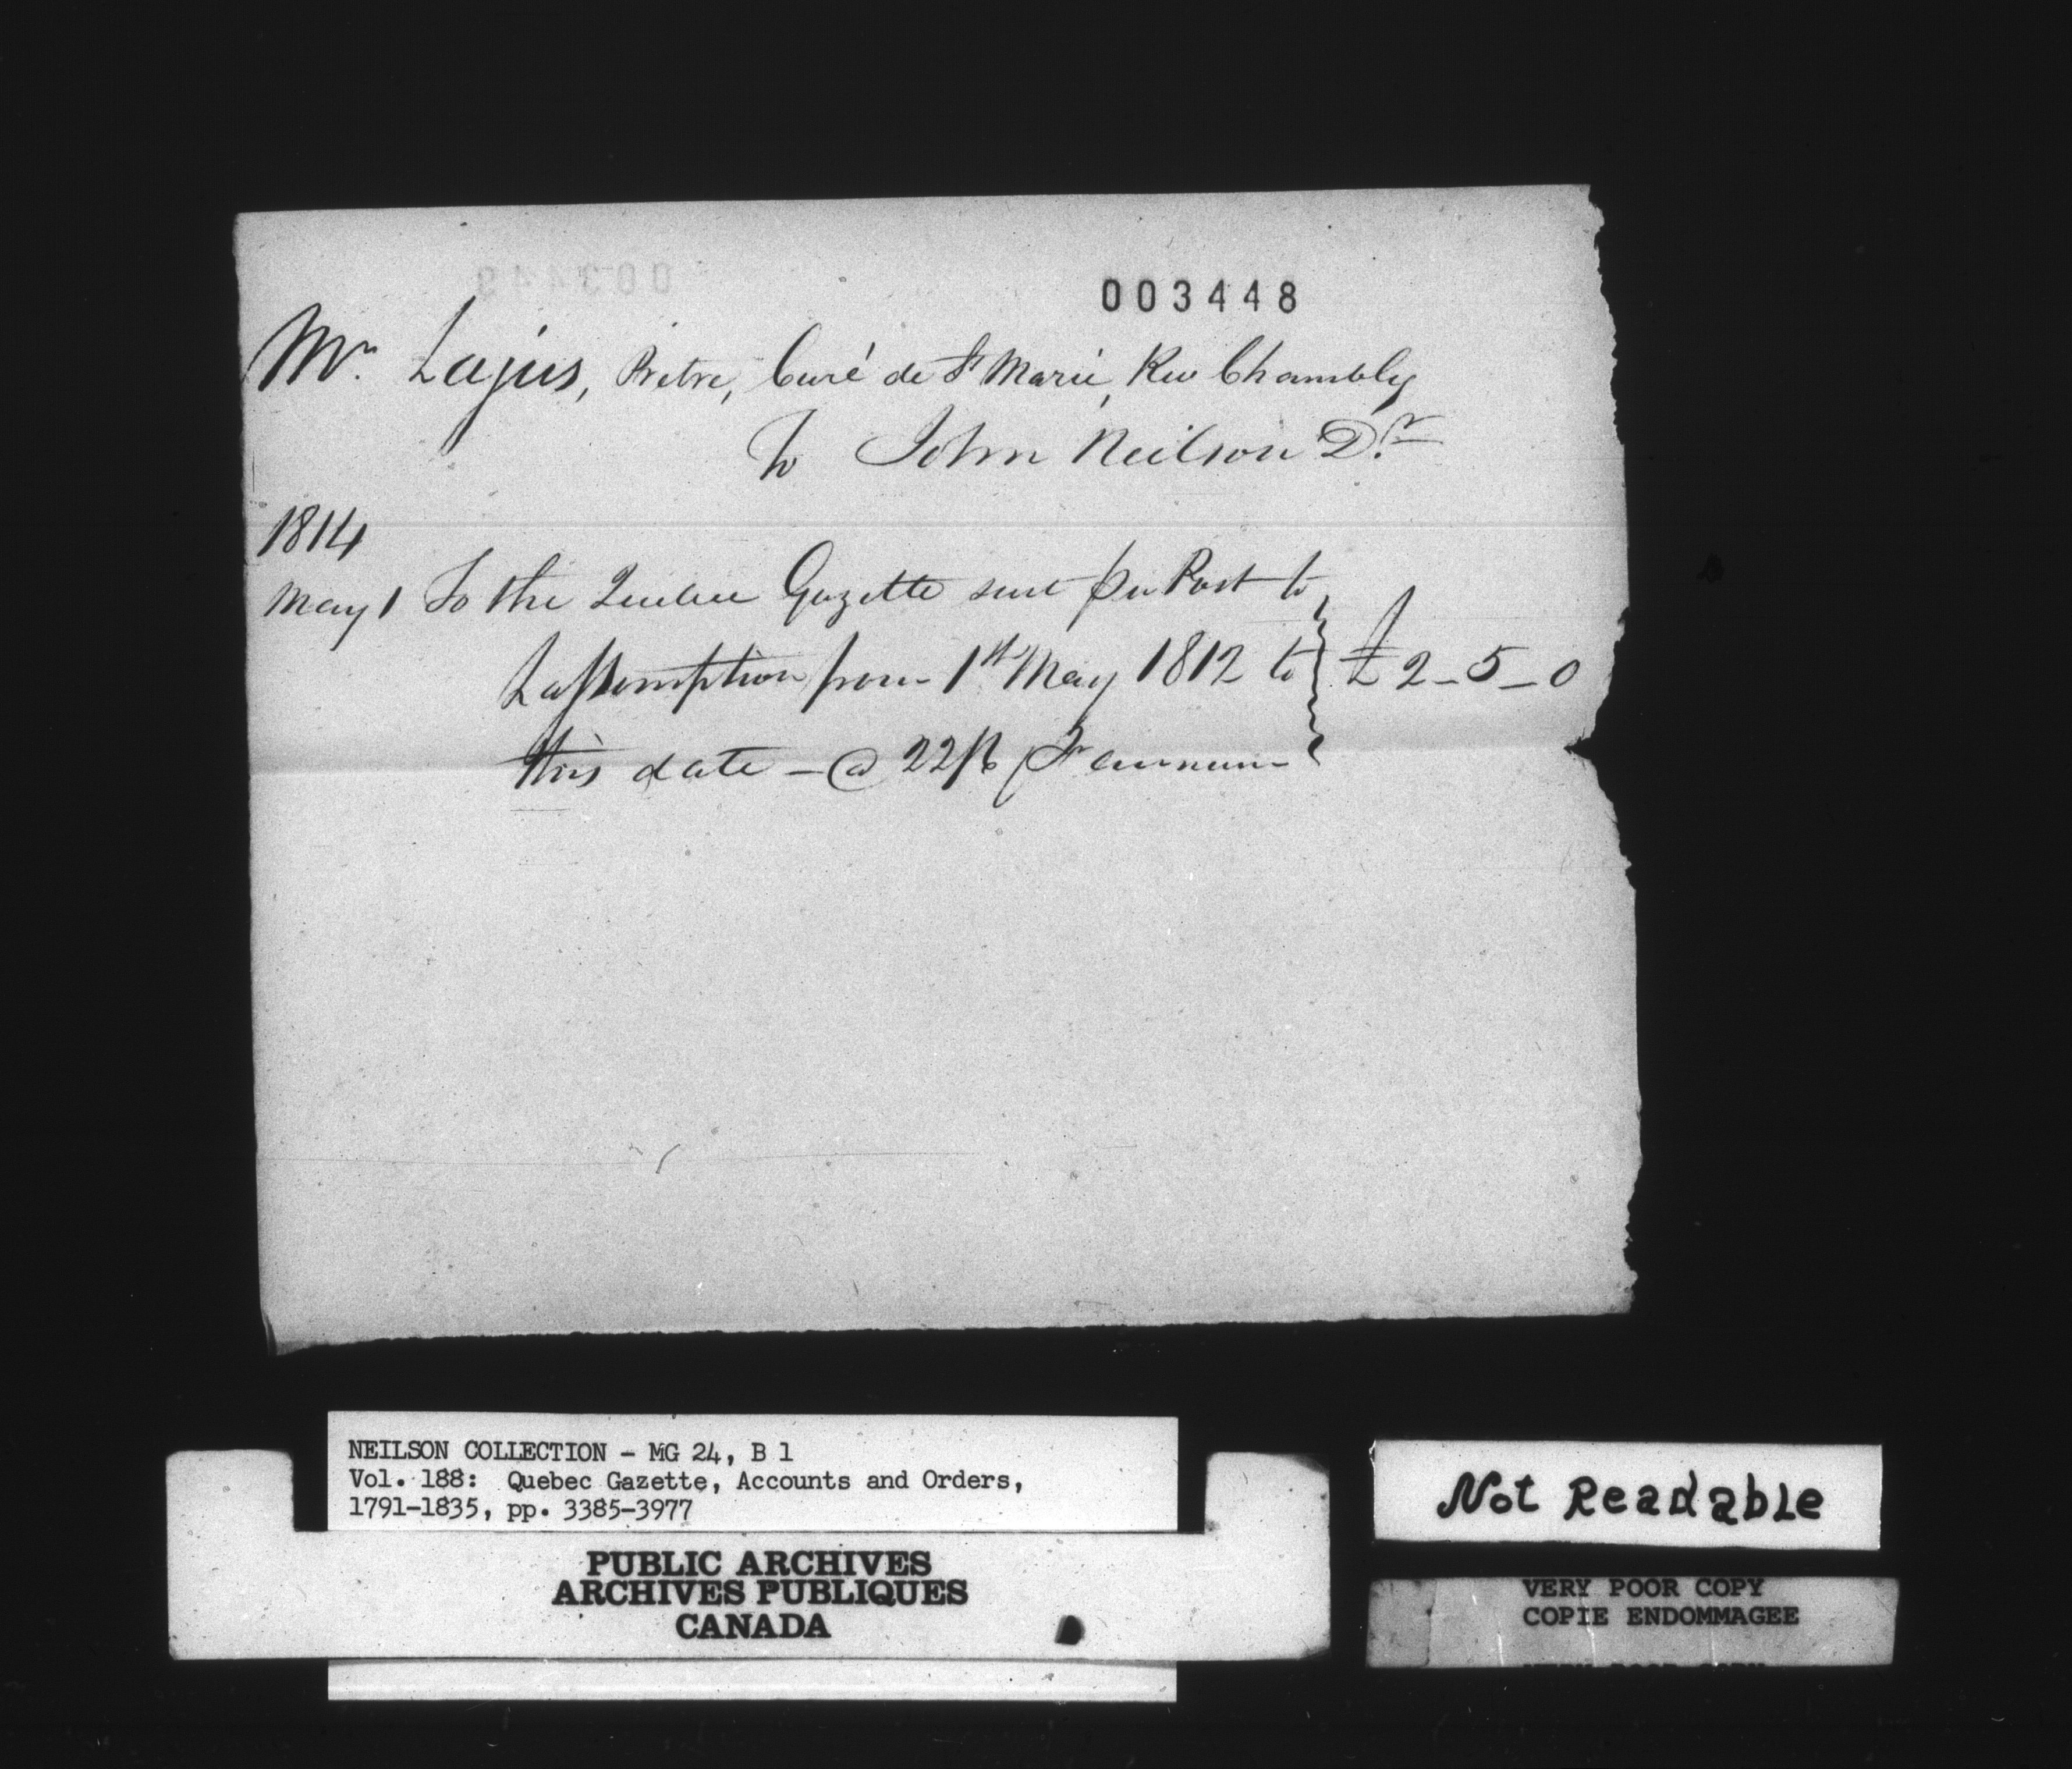 003448
Mr. Lajus, Pretre, Curé de St Marie, Riv Chambly
To John Neilson Dr.
1814
May 1 To the Quebec Gazette sent per Post to
Lassomption from 1st May 1812 to £2-5-0
this date - @ 22/6 Pr annum
NEILSON COLLECTION - MG 24, B 1
Vol. 188: Quebec Gazette, Accounts and Orders,
1791-1835, pp. 3385-3977
PUBLIC ARCHIVES
ARCHIVES PUBLIQUES
CANADA
Not Readable
VERY POOR COPY
COPIE ENDOMMAGEE